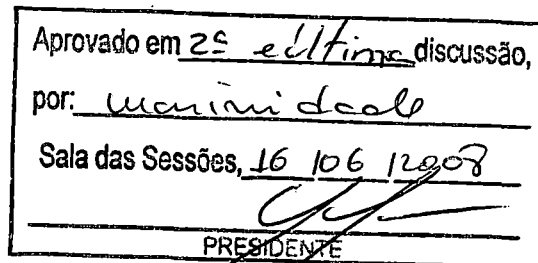 Aprovado em 2ª e última discussão,
por: unanimidade
Sala das Sessões, 16 / 06 / 2008
PRESIDENTE